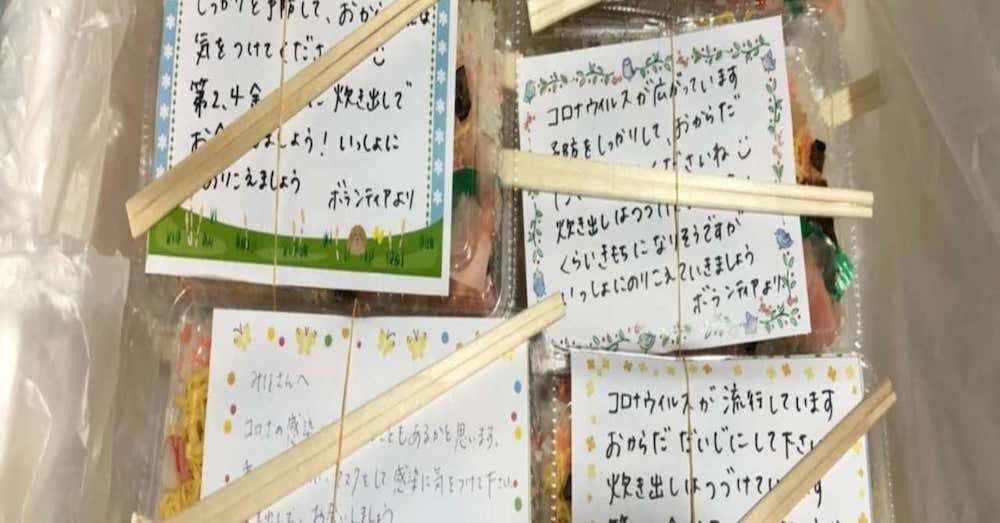 しっかりと予防して、おから
気をつけてくださ
第2.4金 に 炊き出しで
お ましょう！いっしょに
のりこえましょう
ボランティアより
コロナウイルスが広がっています
予防をしっかりして、おからだ
くださいね
炊き出しはつづけ
くらいきもちになりそうですが
いっしょにのりこえていきましょう
ボランティアより
みなさんへ
コロナの感染 こともあるかと思います。
マスクをして感染に気をつけて下さい。
お会いしましょう
コロナウイルスが流行しています
おからだだいじにして下さい
炊き出しはつづけてい ます